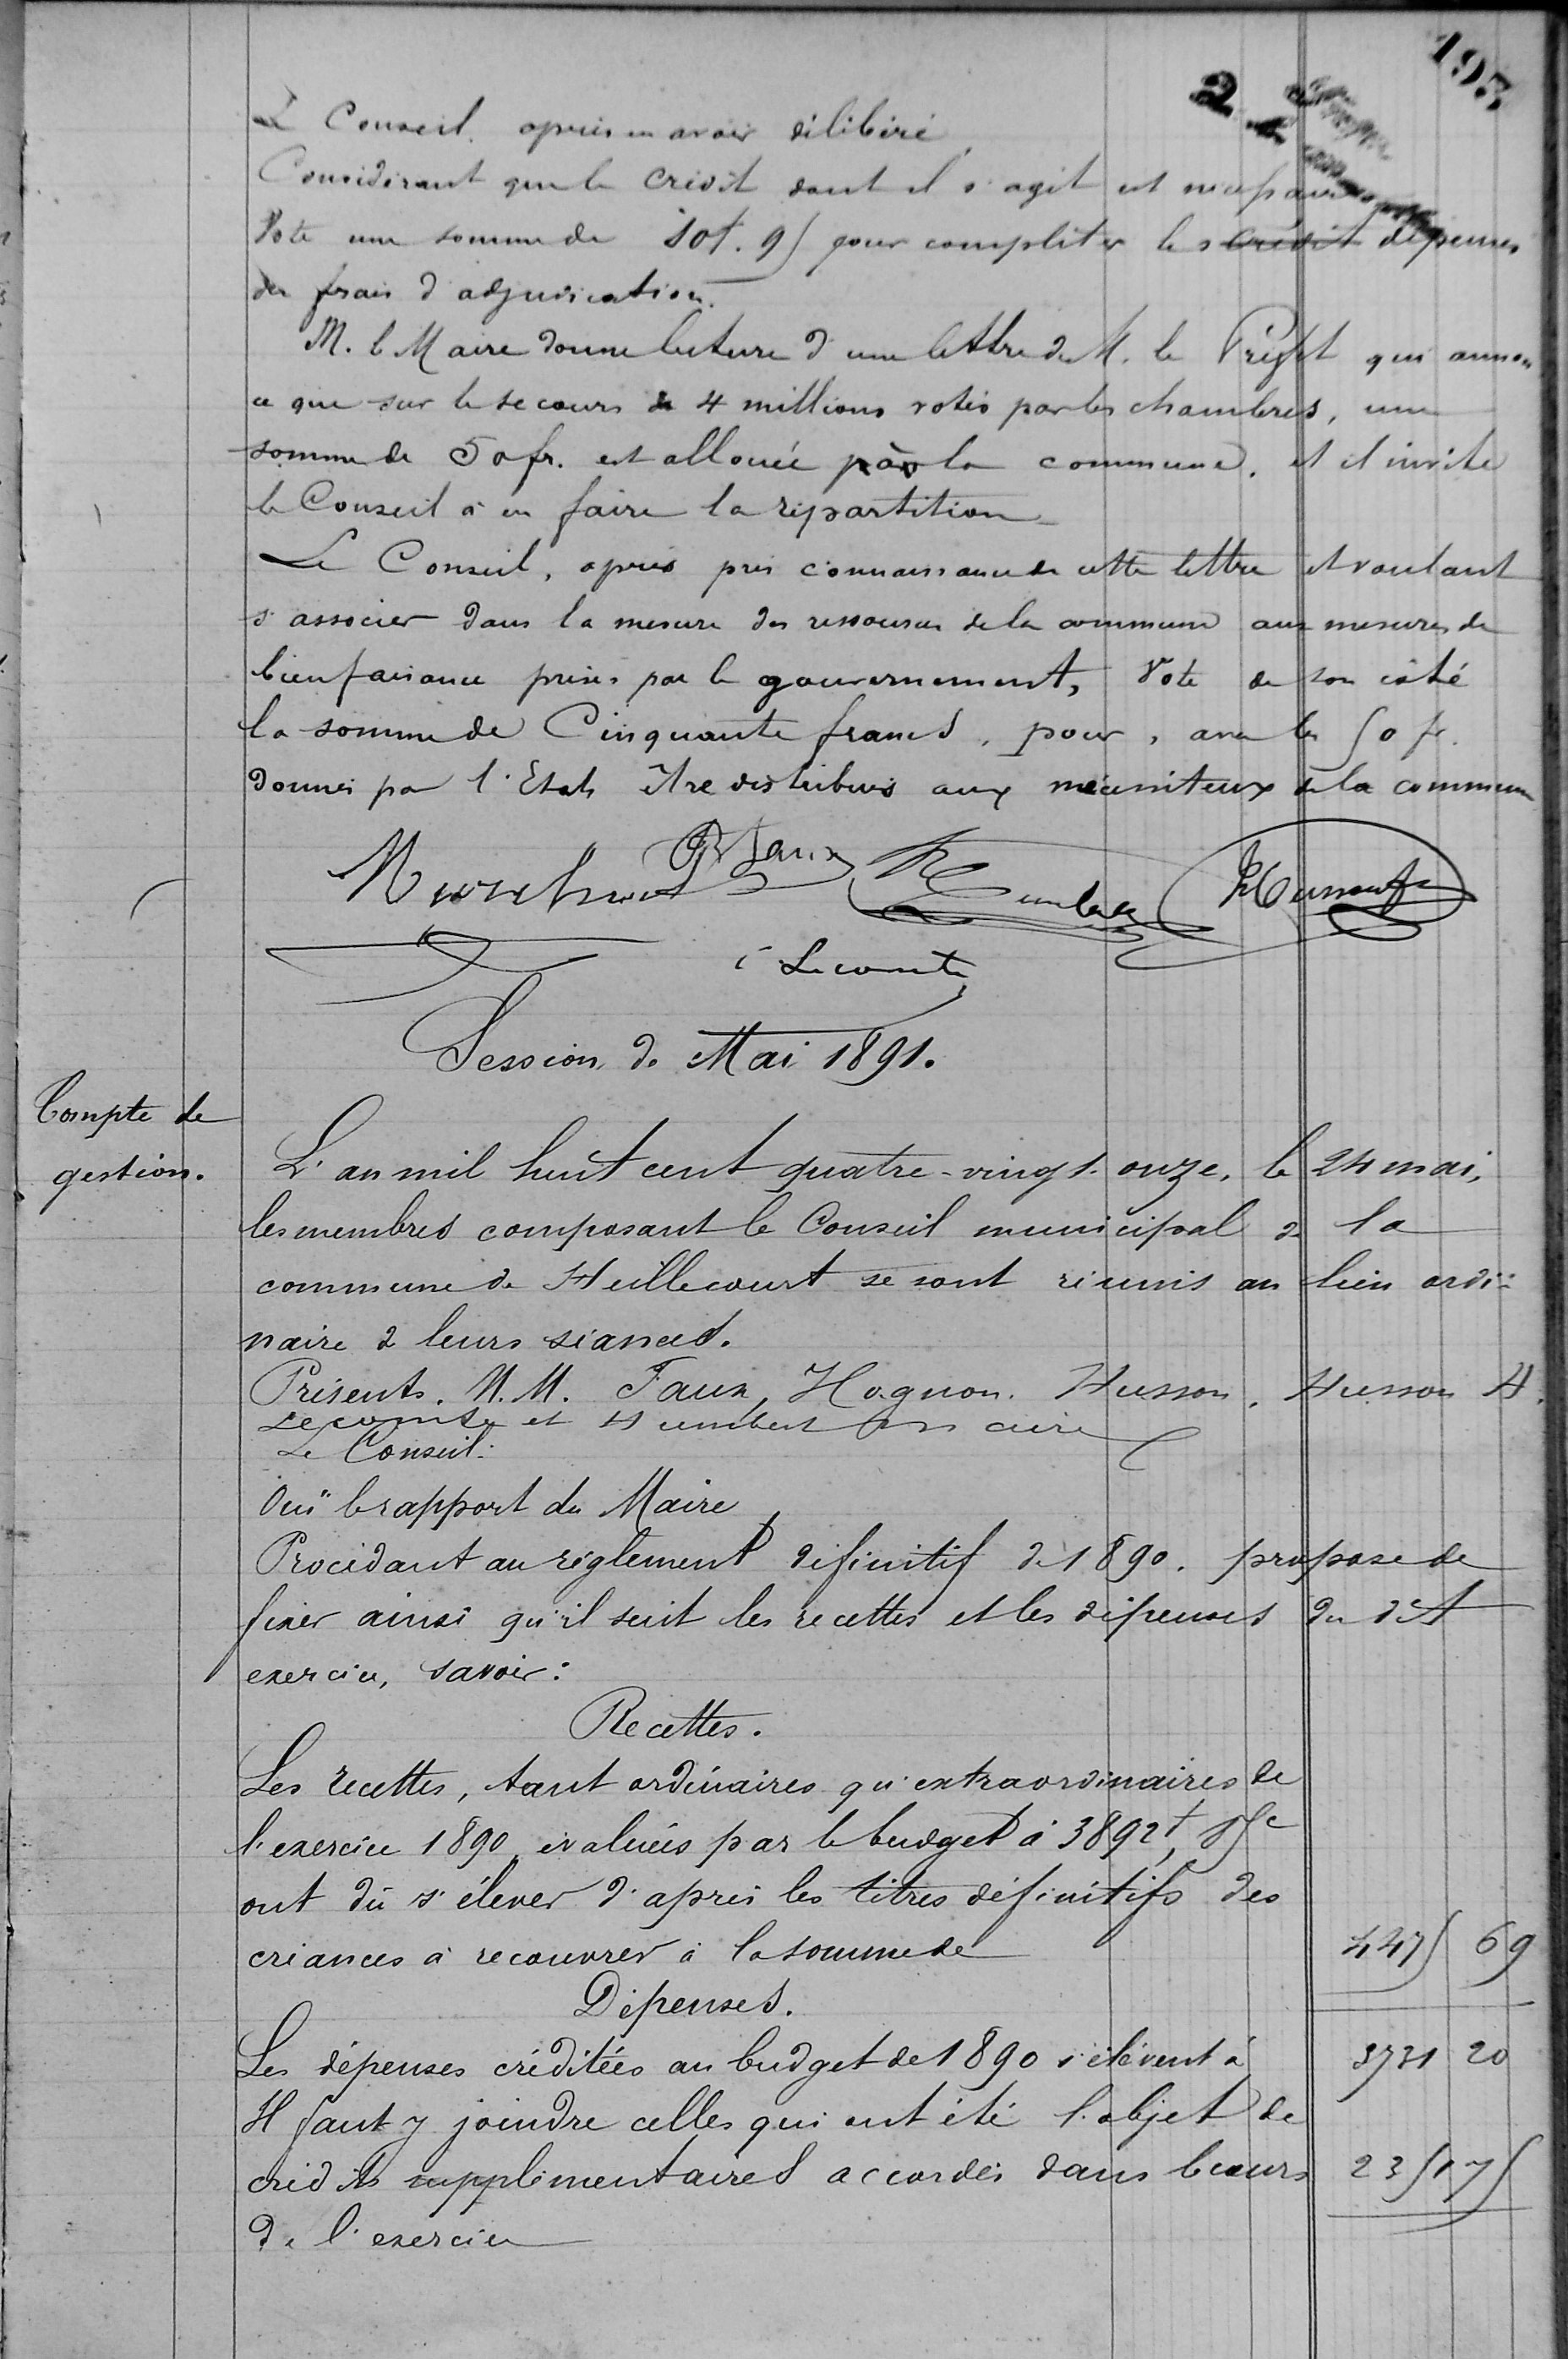 195
2
Le Conseil, après en avoir délibéré,
Considérant que le crédit dont il s'agit est nécessaire
Vote une somme de 10f. 95 pour compléter les crédit dépenses
des frais d'adjudication.
M. le Maire donne lecture d'une lettre de M. le Préfet qui annon
ce que sur le secours de 4 millions votés par les chambres, une
somme de 50 fr. est allouée à la commune, et il invite
le Conseil à en faire la répartition
Le Conseil, après pris connaissance de cette lettre et voulant
s'associer dans la mesure des ressources de la commune aux mesures de
bienfaisance prises par le gouvernement, Vote de son côté
la somme de Cinquante francs, pour, avec les 50 fr.
donnés par l'Etat, être distribués aux nécessiteux de la commune
Faux
Lecomte
Session de Mai 1891.
Compte de
gestion.
L'an mil huit cent quatre-vingt-onze, le 24 mai,
les membres composant le Conseil municipal de la
commune de Heillecourt se sont réunis au lieu ordi-
naire de leurs séances.
Présents. M.M. Faux, Hognon, Husson, Husson H.
Lecomte et Humbert maire
Le Conseil:
Ouï le rapport du Maire
Procédant au règlement définitif de 1890, propose de
fixer ainsi qu'il suit les recettes et les dépenses du dit
exercice, savoir:
Recettes.
Les recettes, tant ordinaires qu'extraordinaires de
l'exercice 1890, évaluées par le budget à 3892f,
ont dû s'élever d'après les titres définitifs des
créances à recouvrer à la somme de 4475 69
Dépenses.
Les dépenses créditées au budget de 1890 s'élèvent à 3731 20
Il faut y joindre celles qui ont été l'objet de
crédits supplémentaires accordés dans le cours 235 75
de l'exercice